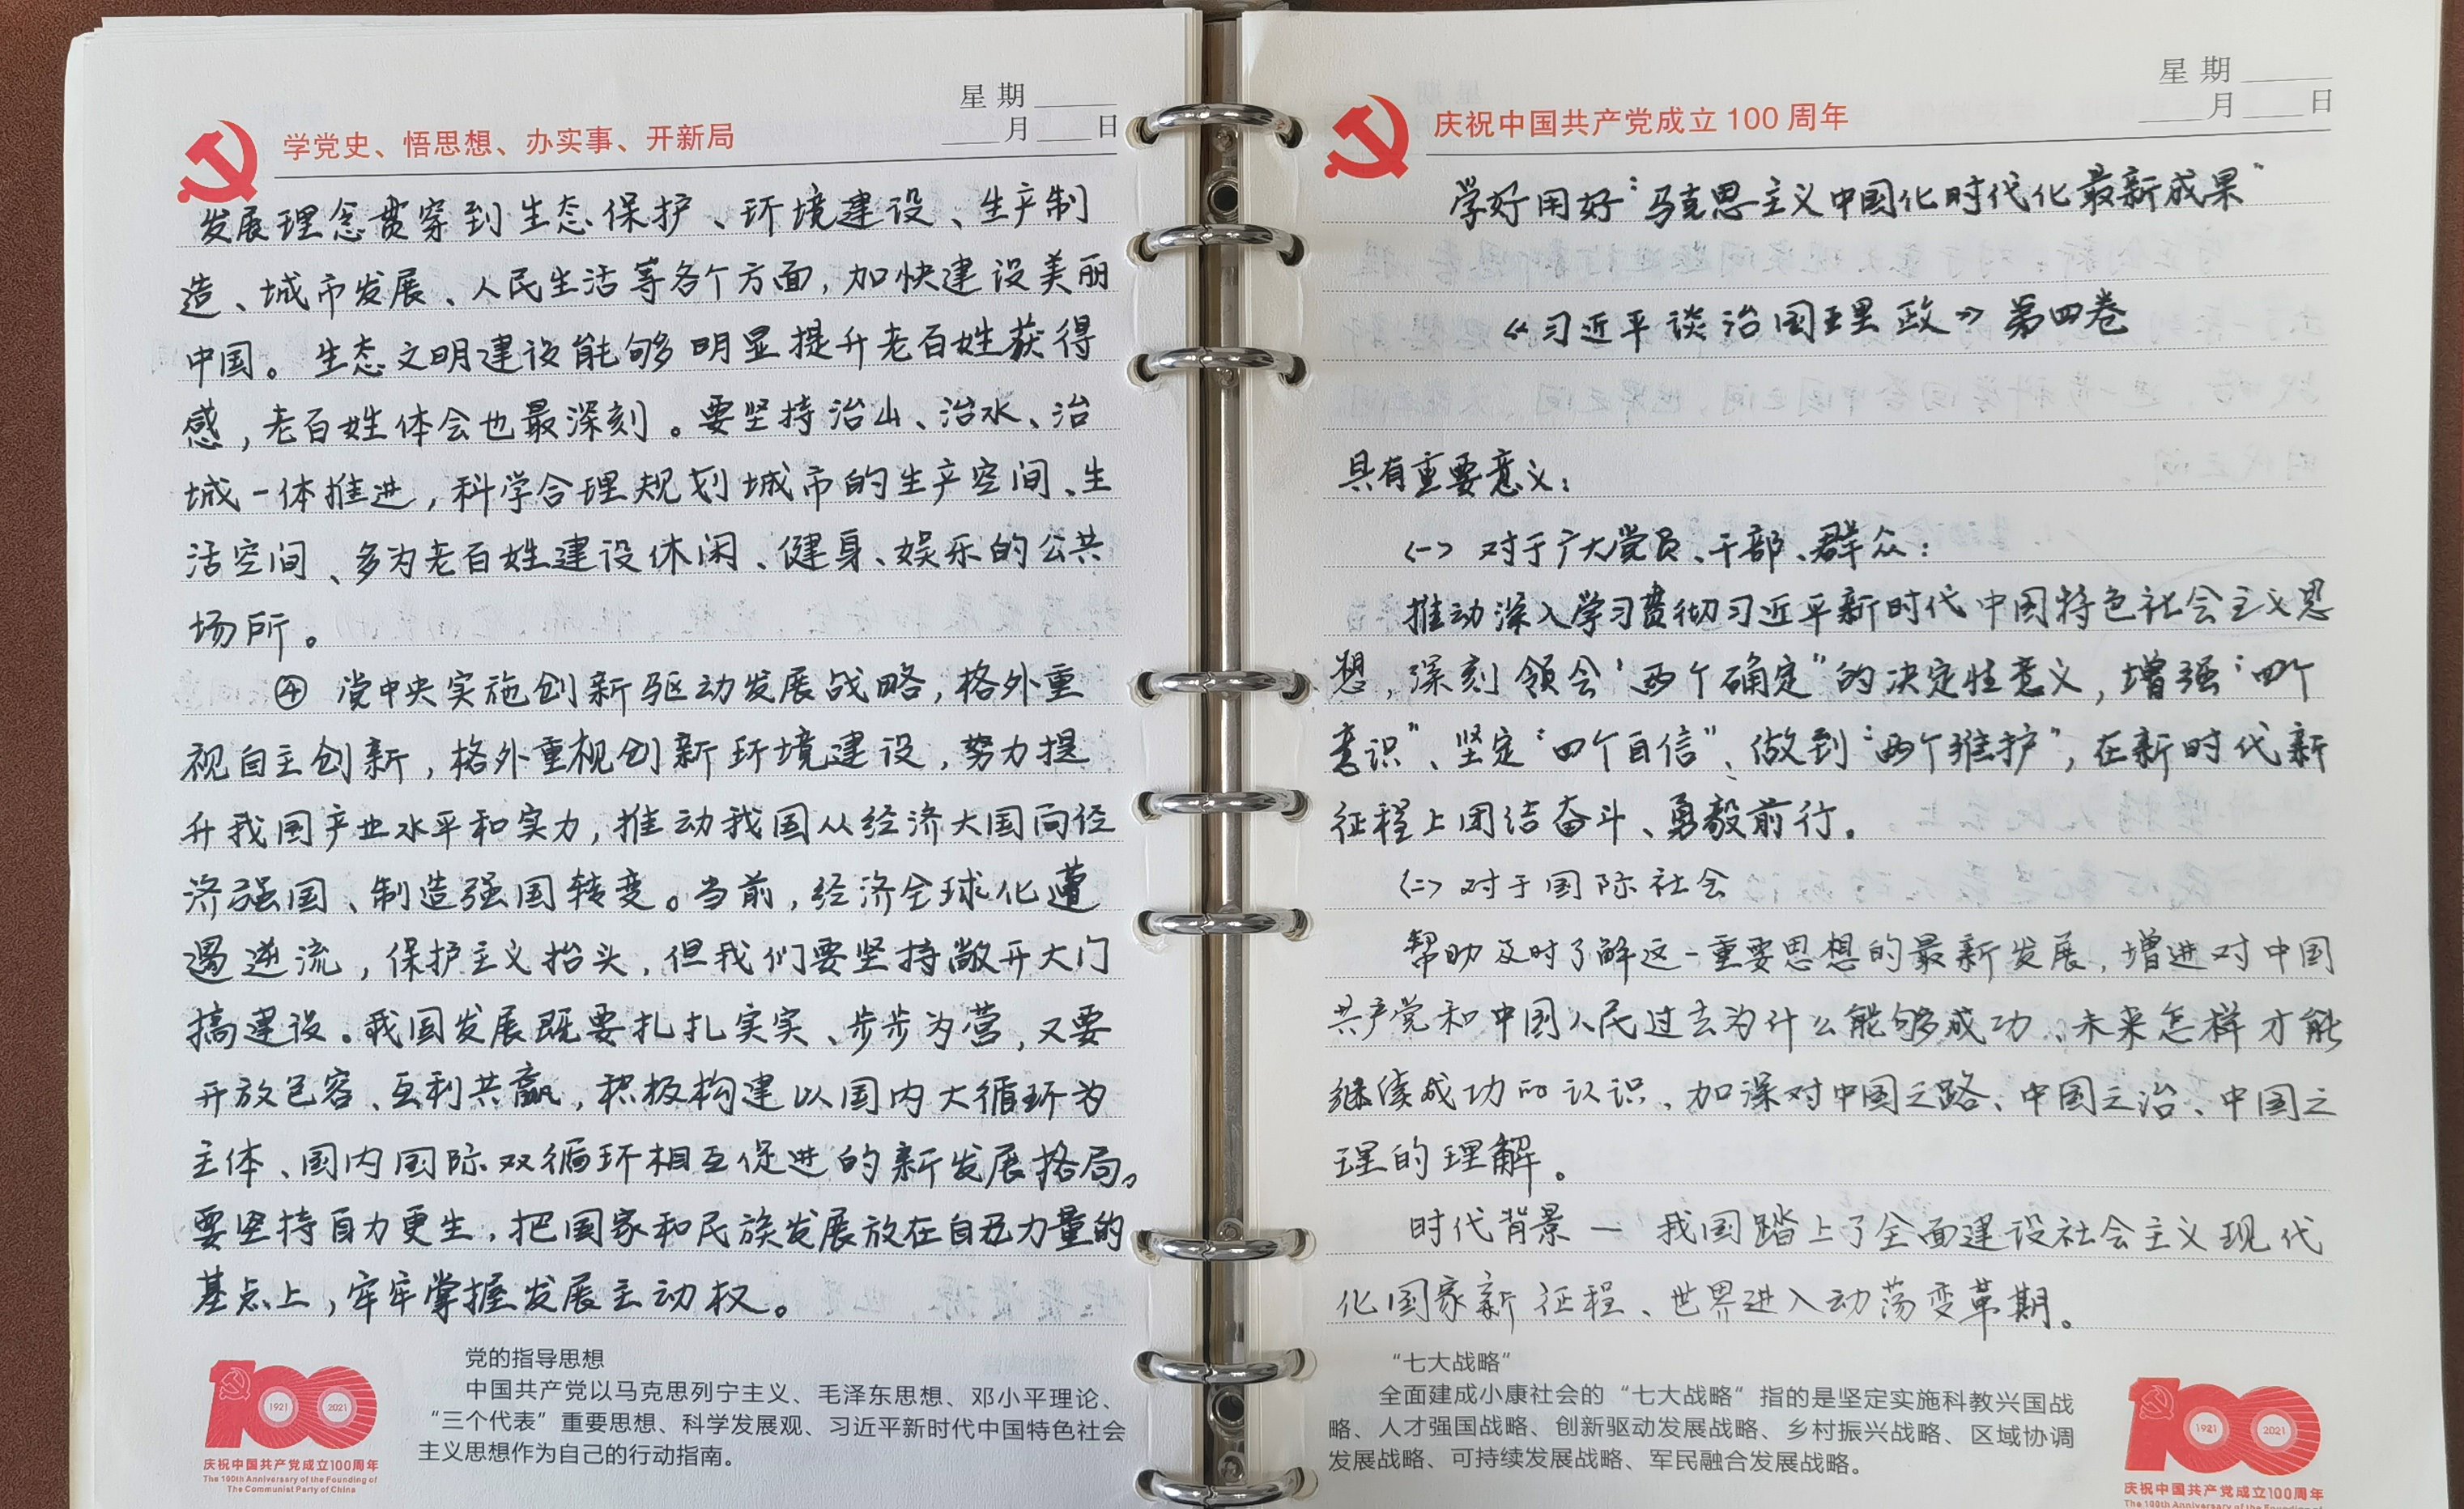 星期
月 日
学党史、悟思想、办实事、开新局
发展理念贯穿到生态保护、环境建设、生产制
造、城市发展、人民生活等各个方面，加快建设美丽
中国。生态文明建设能够明显提升老百姓获得
感，老百姓体会也最深刻。要坚持治山、治水、治
城一体推进，科学合理规划城市的生产空间、生
活空间、多为老百姓建设休闲、健身、娱乐的公共
场所。
④ 党中央实施创新驱动发展战略，格外重
视自主创新，格外重视创新环境建设，努力提
升我国产业水平和实力，推动我国从经济大国向经
济强国、制造强国转变。当前，经济全球化遭
遇逆流，保护主义抬头，但我们要坚持敞开大门
搞建设。我国发展既要扎扎实实、步步为营，又要
开放包容、互利共赢，积极构建以国内大循环为
主体、国内国际双循环相互促进的新发展格局。
要坚持自力更生，把国家和民族发展放在自己力量的
基点上，牢牢掌握发展主动权。
党的指导思想
中国共产党以马克思列宁主义、毛泽东思想、邓小平理论、
“三个代表”重要思想、科学发展观、习近平新时代中国特色社会
主义思想作为自己的行动指南。
100
1921 2021
庆祝中国共产党成立100周年
The 100th Anniversary of the Founding of
The Communist Party of China
星期
月 日
庆祝中国共产党成立 100 周年
学好用好“马克思主义中国化时代化最新成果”
《习近平谈治国理政》第四卷
具有重要意义：
<一> 对于广大党员、干部、群众：
推动深入学习贯彻习近平新时代中国特色社会主义思
想，深刻领会“两个确定”的决定性意义，增强“四个
意识”、坚定“四个自信”、做到“两个维护”，在新时代新
征程上团结奋斗、勇毅前行。
<二> 对于国际社会
帮助及时了解这一重要思想的最新发展，增进对中国
共产党和中国人民过去为什么能够成功、未来怎样才能
继续成功的认识，加深对中国之路、中国之治、中国之
理的理解。
时代背景 — 我国踏上了全面建设社会主义现代
化国家新征程、世界进入动荡变革期。
“七大战略”
全面建成小康社会的“七大战略”指的是坚定实施科教兴国战
略、人才强国战略、创新驱动发展战略、乡村振兴战略、区域协调
发展战略、可持续发展战略、军民融合发展战略。
100
1921 2021
庆祝中国共产党成立100周年
The 100th Anniversary of the Founding of